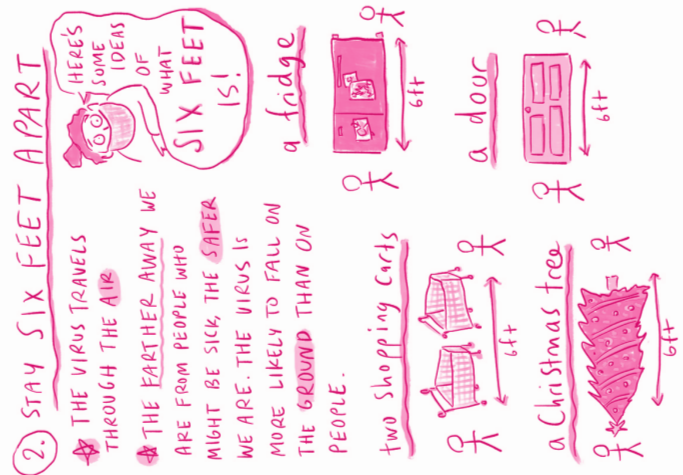 2. STAY SIX FEET APART
THE VIRUS TRAVELS
THROUGH THE AIR
THE FARTHER AWAY WE
ARE FROM PEOPLE WHO
MIGHT BE SICK, THE SAFER
WE ARE. THE VIRUS IS
MORE LIKELY TO FALL ON
THE GROUND THAN ON
PEOPLE.
HERE'S
SOME
IDEAS
OF
WHAT
SIX FEET
IS!
a fridge
6ft
two shopping carts
6ft
a door
6ft
a Christmas tree
6ft